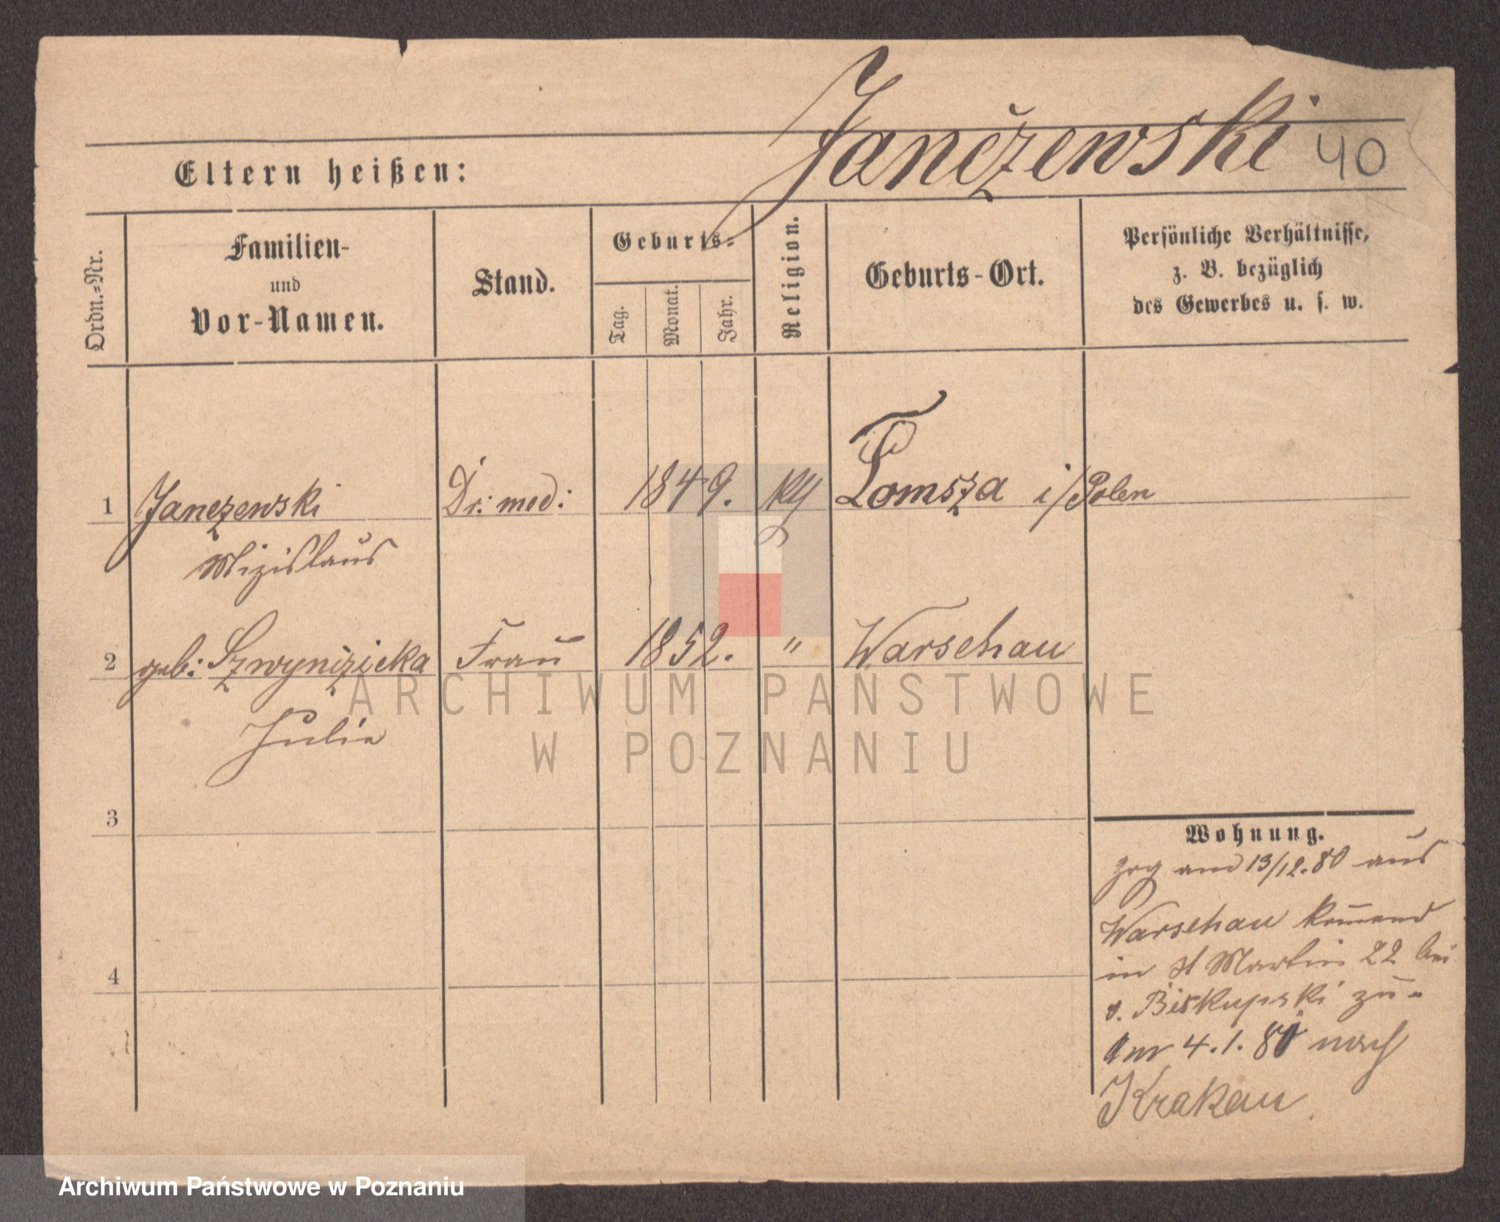 Janczewski 40
Eltern heißen:
Ordn.-Nr.
Familien-
und
Vor-Namen.
Stand.
Geburts-
Tag.
Monat.
Jahr.
Religion.
Geburts-Ort.
Persönliche Verhältnisse,
z. B. bezüglich
des Gewerbes u. s. w.
1 Janczewski Dr: med: 1849. Lomsza i/Polen
Mizislaus
2 geb: Szwynizicka Frau 1852. " Warschau
Julie
3
4
Wohnung.
am 13/12.80 aus
Warschau kommend
in St Martin 22 bei
v. Biskupski zu-
4.1.81 nach
Krakau.
ARCHIWUM PAŃSTWOWE
W POZNANIU
Archiwum Państwowe w Poznaniu